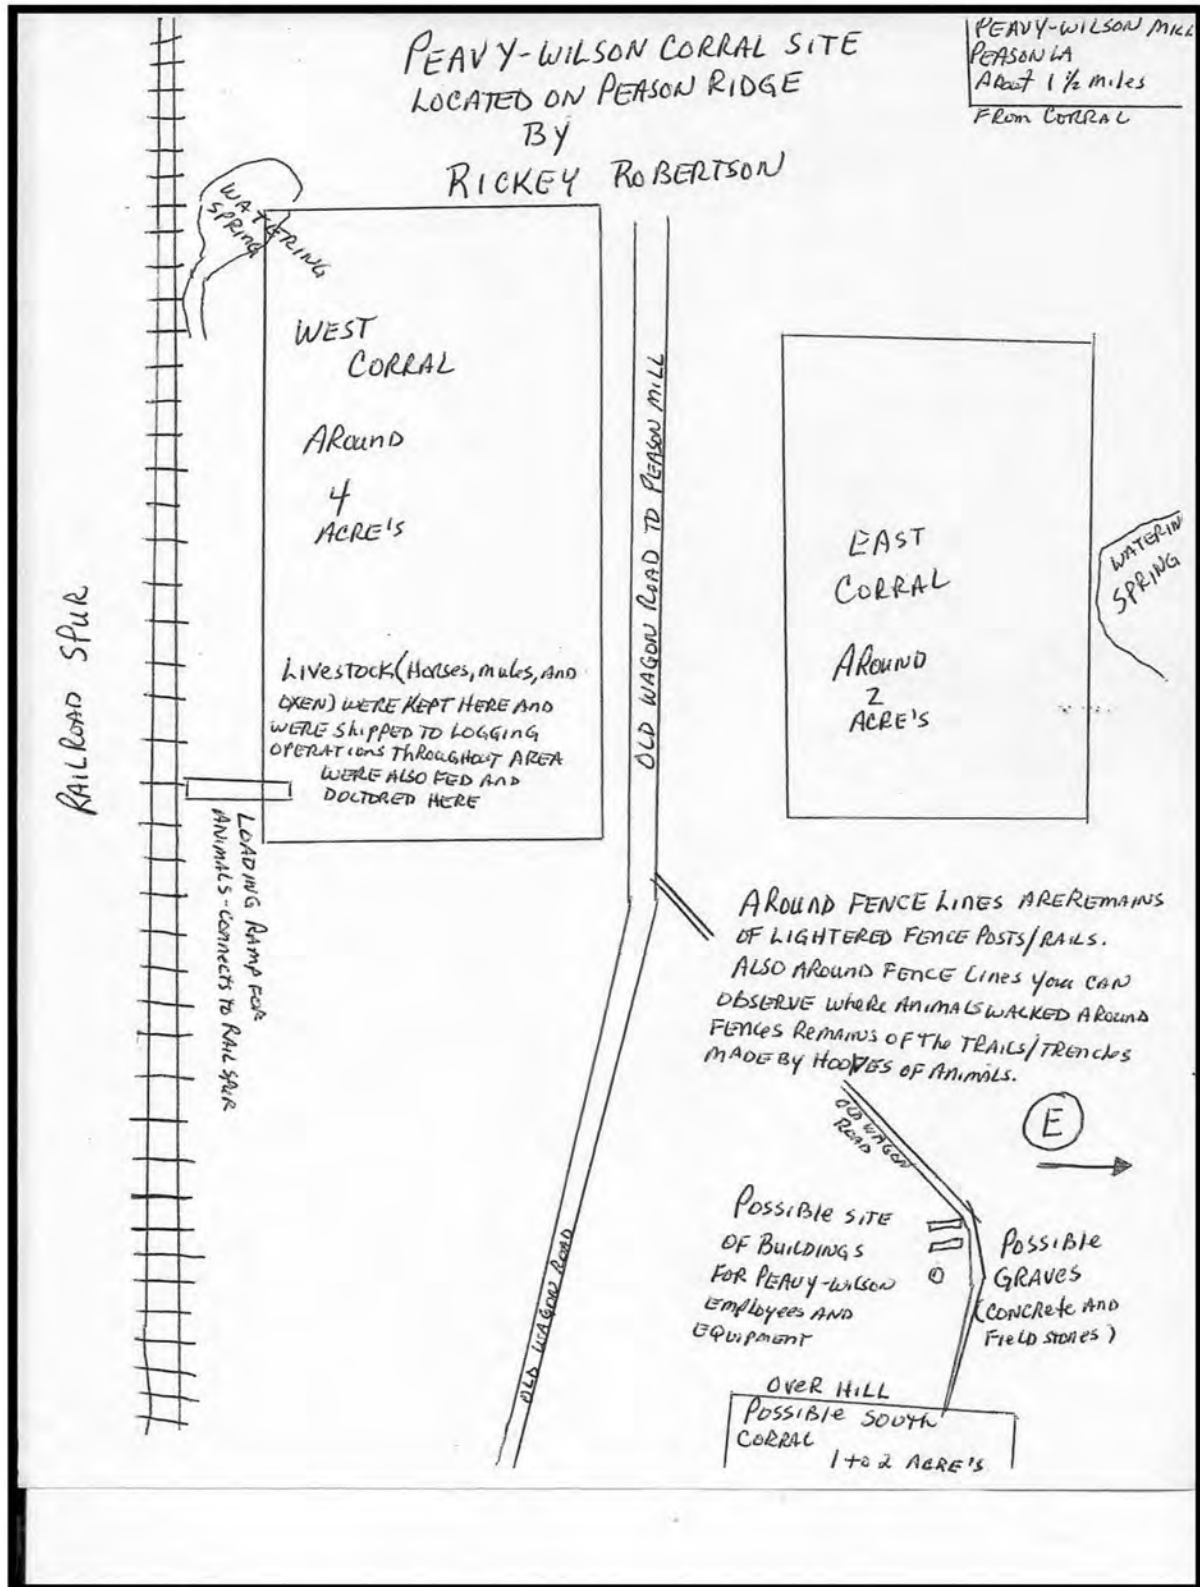 PEAVY-WILSON CORRAL SITE
LOCATED ON PEASON RIDGE
BY
RICKEY ROBERTSON
PEAVY-WILSON MILL
PEASON LA
ABOUT 1 1/2 MILES
FROM CORRAL
WATERING
SPRING
WEST
CORRAL
AROUND
4
ACRE'S
LIVESTOCK (HORSES, MULES, AND
OXEN) WERE KEPT HERE AND
WERE SHIPPED TO LOGGING
OPERATIONS THROUGHOUT AREA
WERE ALSO FED AND
DOCTORED HERE
RAILROAD SPUR
LOADING RAMP FOR
ANIMALS-CONNECTS TO RAIL SPUR
OLD WAGON ROAD TO PEASON MILL
EAST
CORRAL
AROUND
2
ACRE'S
WATERIN
SPRING
AROUND FENCE LINES ARE REMAINS
OF LIGHTERED FENCE POSTS/RAILS.
ALSO AROUND FENCE LINES YOU CAN
OBSERVE WHERE ANIMALS WALKED AROUND
FENCES REMAINS OF THE TRAILS/TRENCHES
MADE BY HOOVES OF ANIMALS.
E
OLD WAGON
ROAD
POSSIBLE SITE
OF BUILDINGS
FOR PEAVY-WILSON
EMPLOYEES AND
EQUIPMENT
POSSIBLE
GRAVES
(CONCRETE AND
FIELD STONES)
OLD WAGON ROAD
OVER HILL
POSSIBLE SOUTH
CORRAL
1 TO 2 ACRE'S